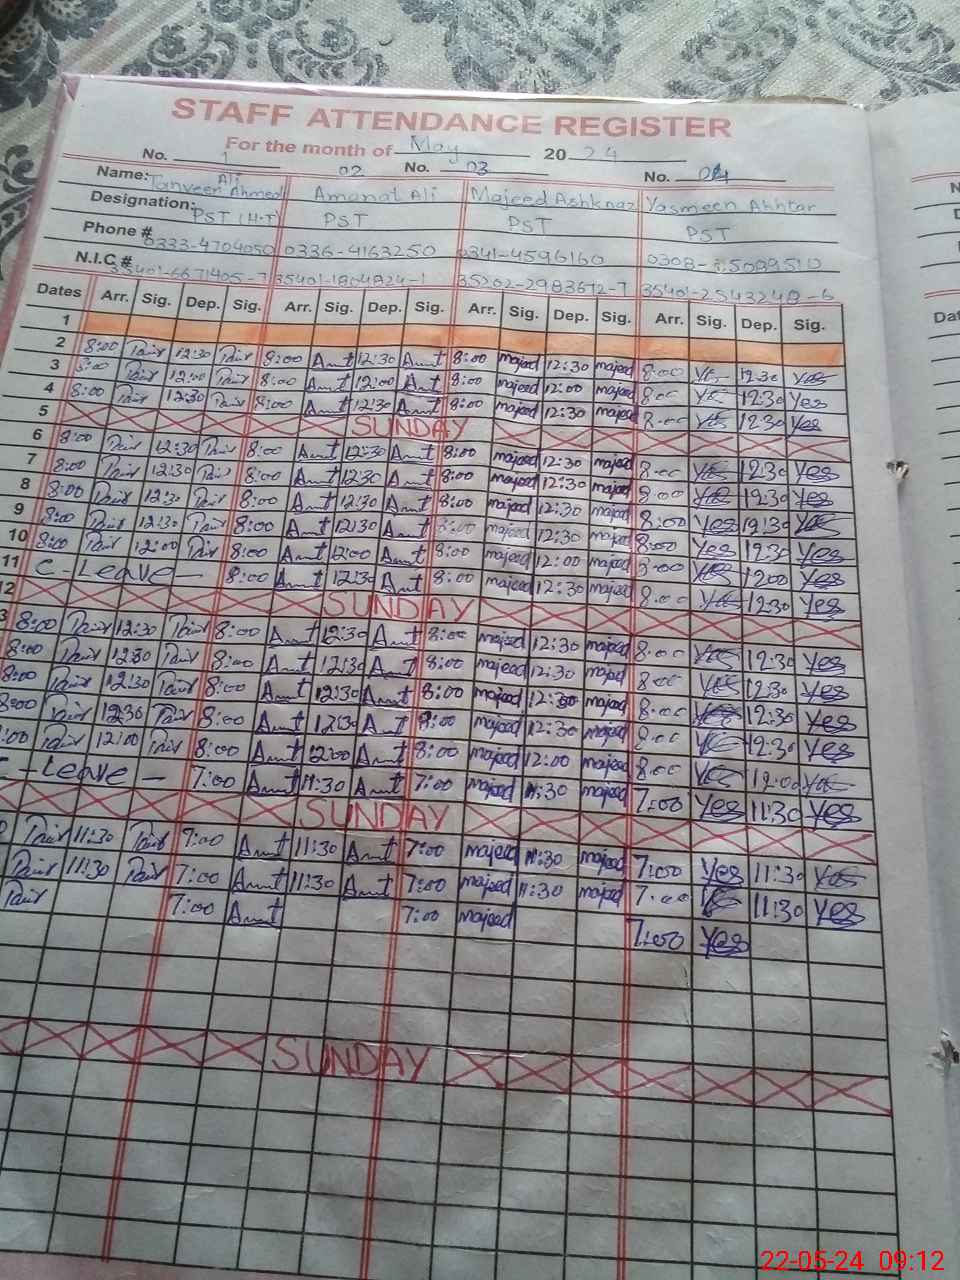 STAFF ATTENDANCE REGISTER
For the month of May 2024
No. 1 02 No. 03 No. 04
Name: Tanveer Ahmed Ali Amanat Ali Majeed Ashknaz Yasmeen Akhtar
Designation: PST (H.T) PST PST PST
Phone # 0333-4704050 0336-4163250 0341-4596160
N.I.C.# 35401-6671405-7 35401-1804824-1 35202-2983672-7
Dates Arr. Sig. Dep. Sig. Arr. Sig. Dep. Sig. Arr. Sig. Dep. Sig. Arr. Sig. Dep. Sig.
1
2 8:00 12:30 8:00 Amt 12:30 Amt 8:00 majeed 12:30 majeed 8:00 Yes 12:30 Yes
3 8:00 12:00 8:00 Amt 12:00 Amt 8:00 majeed 12:00 majeed 8:00 Yes 12:30 Yes
4 8:00 12:30 8:00 Amt 12:30 Amt 8:00 majeed 12:30 majeed 8:00 Yes 12:30 Yes
5 SUNDAY
6 8:00 12:30 8:00 Amt 12:30 Amt 8:00 majeed 12:30 majeed 8:00 Yes 12:30 Yes
7 8:00 12:30 8:00 Amt 12:30 Amt 8:00 majeed 12:30 majeed 8:00 Yes 12:30 Yes
8 8:00 12:30 8:00 Amt 12:30 Amt 8:00 majeed 12:30 majeed 8:00 Yes 12:30 Yes
9 8:00 12:30 8:00 Amt 12:30 Amt 8:00 majeed 12:30 majeed 8:00 Yes 12:30 Yes
10 8:00 12:00 8:00 Amt 12:00 Amt 8:00 majeed 12:00 majeed 8:00 Yes 12:00 Yes
11 C-Leave- 8:00 Amt 12:30 Amt 8:00 majeed 12:30 majeed 8:00 Yes 12:30 Yes
12 SUNDAY
3 8:00 12:30 8:00 Amt 12:30 Amt 8:00 majeed 12:30 majeed 8:00 Yes 12:30 Yes
8:00 12:30 8:00 Amt 12:30 Amt 8:00 majeed 12:30 majeed 8:00 Yes 12:30 Yes
8:00 12:30 8:00 Amt 12:30 Amt 8:00 majeed 12:30 majeed 8:00 Yes 12:30 Yes
8:00 12:30 8:00 Amt 12:30 Amt 8:00 majeed 12:30 majeed 8:00 Yes 12:30 Yes
:00 12:00 8:00 Amt 12:00 Amt 8:00 majeed 12:00 majeed 8:00 Yes 12:00 Yes
-Leave - 7:00 Amt 11:30 Amt 7:00 majeed 11:30 majeed 7:00 Yes 11:30 Yes
SUNDAY
11:30 7:00 Amt 11:30 Amt 7:00 majeed 11:30 majeed 7:00 Yes 11:30 Yes
11:30 7:00 Amt 11:30 Amt 7:00 majeed 11:30 majeed 7:00 Yes 11:30 Yes
7:00 Amt 7:00 majeed 7:00 Yes
SUNDAY
22-05-24 09:12